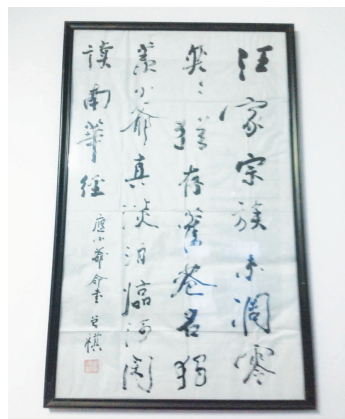 汪家宗族未凋零
奕々猶存舊巷名獨
羨小爺真淡泊臨河閑
讀南華經
應小爺命書 曾祺